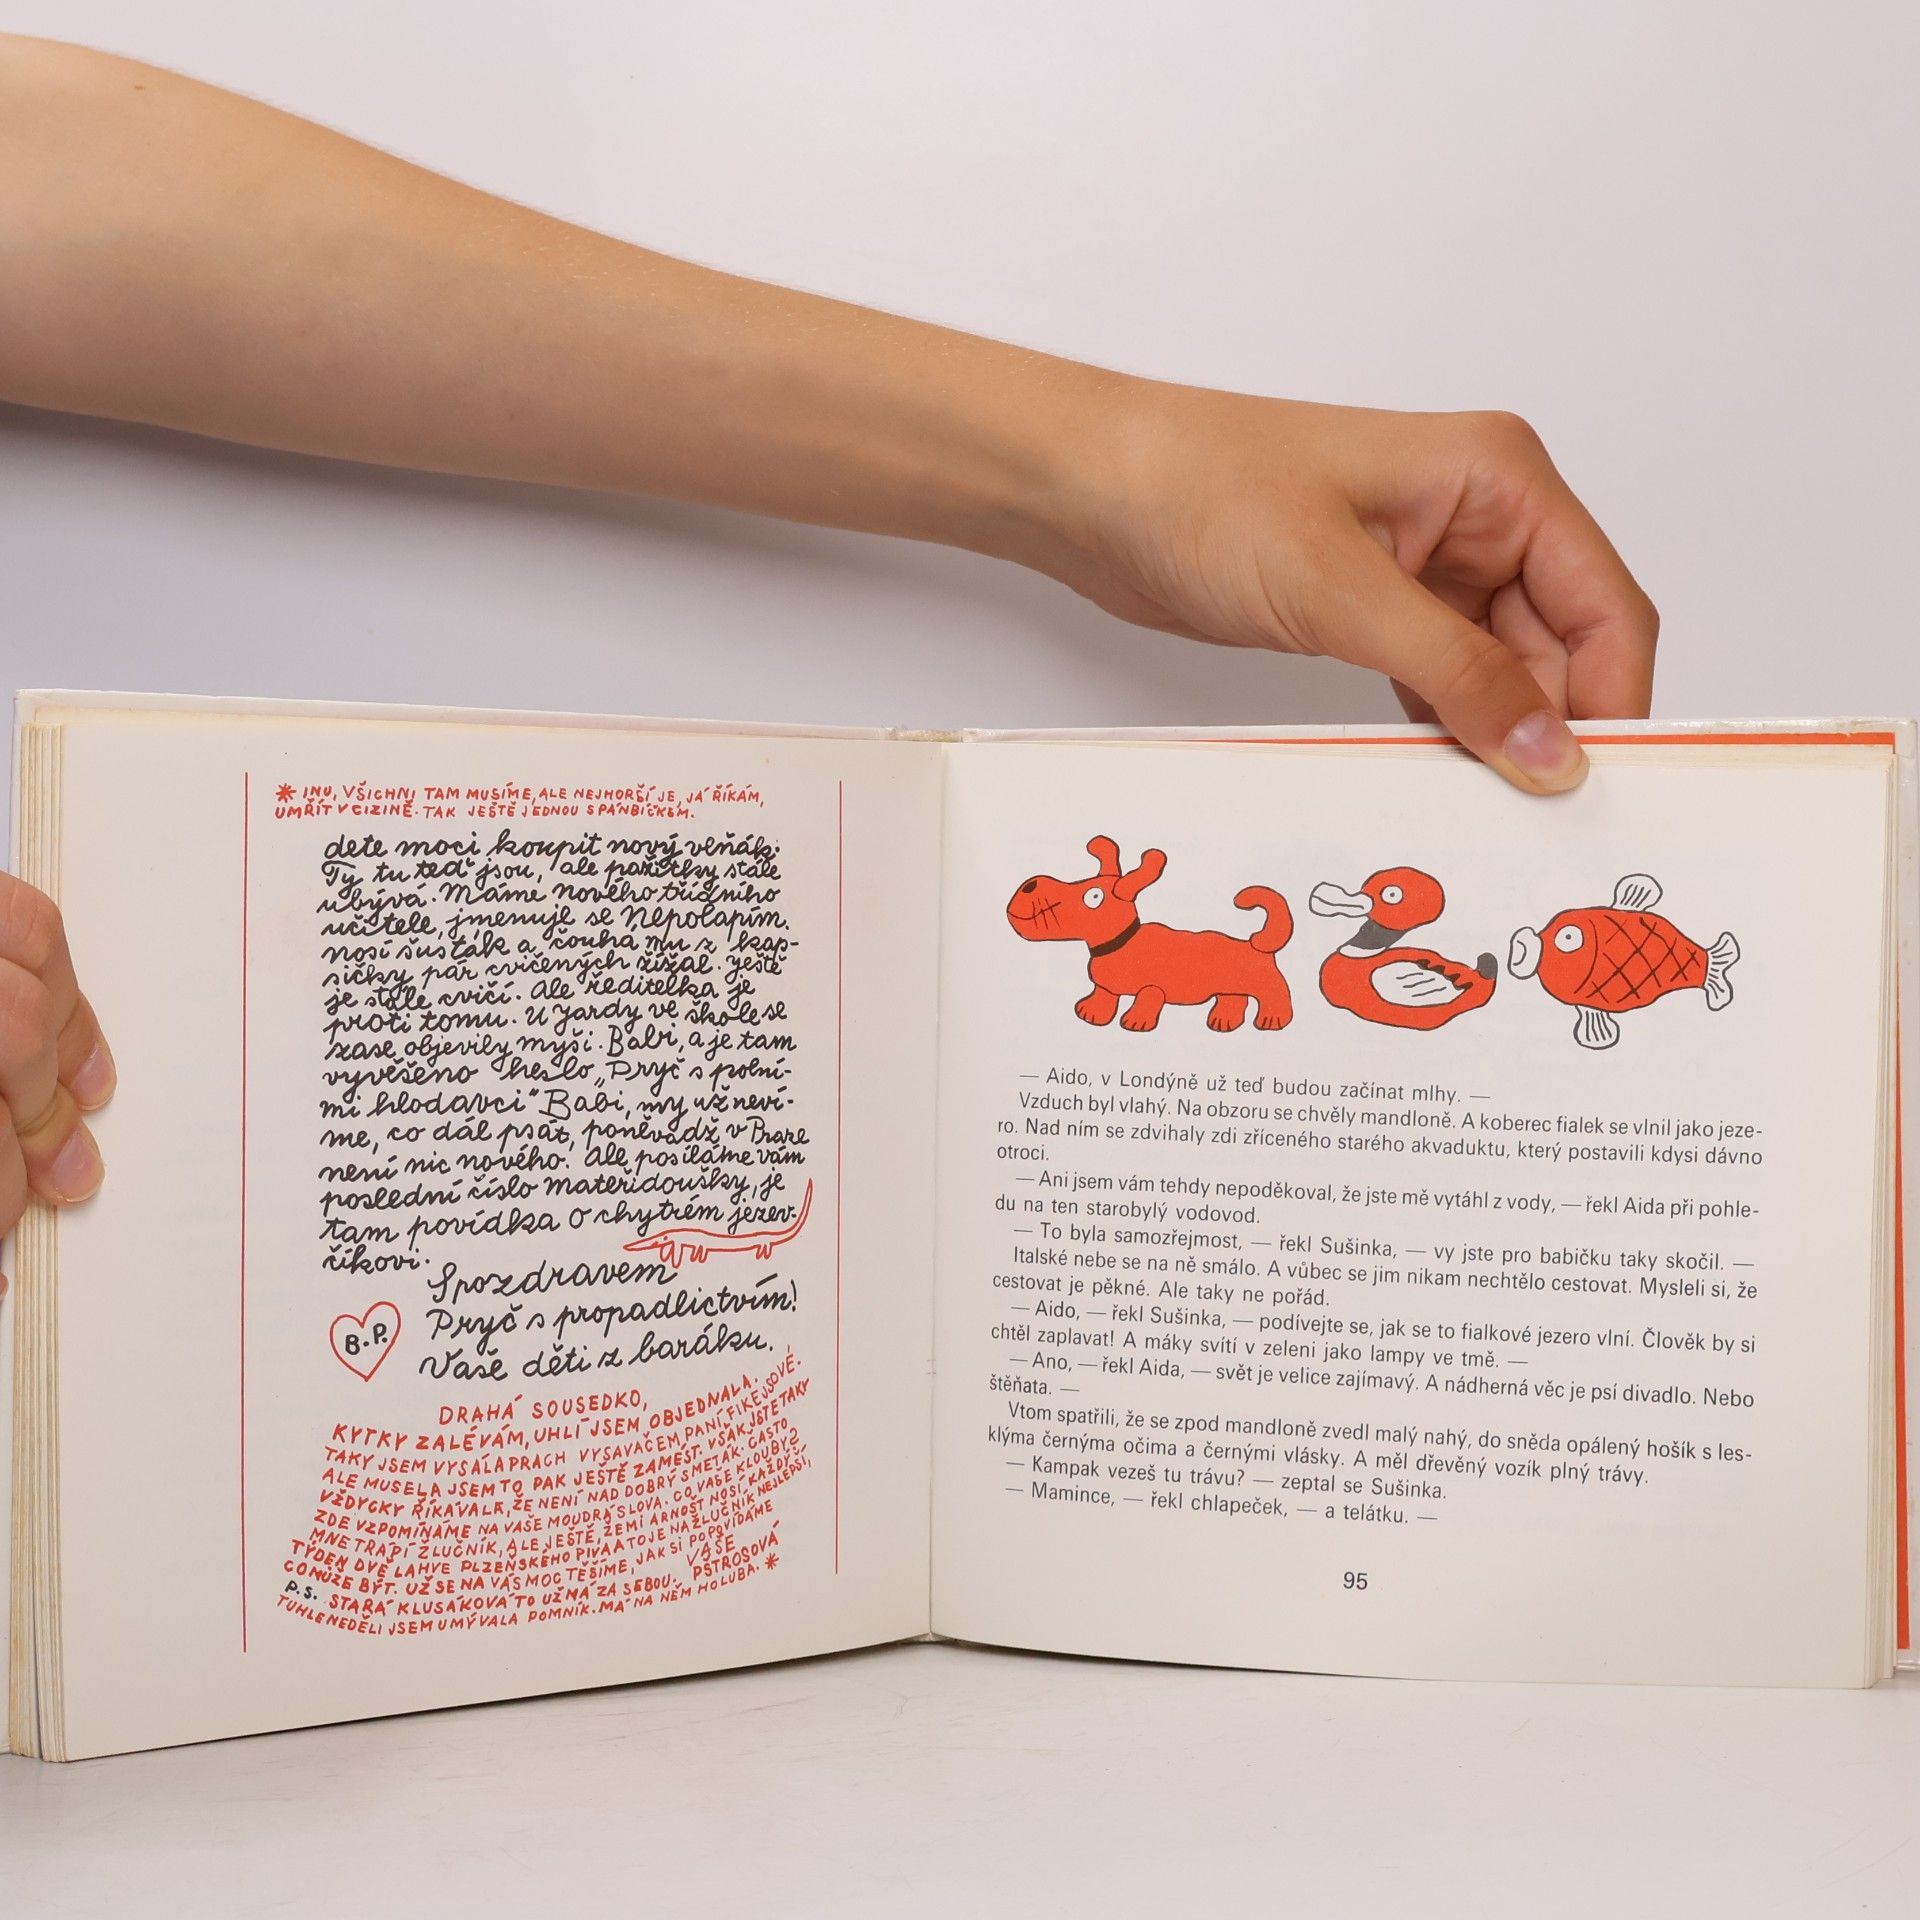 * INU, VŠICHNI TAM MUSÍME, ALE NEJHORŠÍ JE, JÁ ŘÍKÁM,
UMŘÍT V CIZINĚ. TAK JEŠTĚ JEDNOU S PÁNBÍČKEM.
dete moci koupit nový vlňák.
Ty tu teď jsou, ale pažitky stále
ubývá. Máme nového třídního
učitele, jmenuje se Nepolapím.
nosí šusťák a čouhá mu z kap-
sičky pár cvičených žížal. Ještě
je stále cvičí. Ale ředitelka je
proti tomu. U Jardy ve škole se
zase objevily myši. Babi, a je tam
vyvěšeno heslo „Pryč s polní-
mi hlodavci" Babi, my už neví-
me, co dál psát, poněvadž v Praze
není nic nového. Ale posíláme vám
poslední číslo Mateřídoušky, je
tam povídka o chytrém jezev-
číkovi.
S pozdravem
Pryč s propadlictvím!
Vaše děti z baráku.
B.P.
DRAHÁ SOUSEDKO,
KYTKY ZALÉVÁM, UHLÍ JSEM OBJEDNALA.
TAKY JSEM VYSÁLA PRACH VYSAVAČEM PANÍ FIKEJSOVÉ.
ALE MUSELA JSEM TO PAK JEŠTĚ ZAMÉST. VŠAK JSTE TAKY
VŽDYCKY ŘÍKÁVALA, ŽE NENÍ NAD DOBRÝ SMETÁK. ČASTO
ZDE VZPOMÍNÁME NA VAŠE MOUDRÁ SLOVA. CO VAŠE KLOUBY?
MNE TRÁPÍ ŽLUČNÍK, ALE JEŠTĚ, ŽE MI ARNOŠT NOSÍ KAŽDÝ
TÝDEN DVĚ LAHVE PLZEŇSKÉHO PIVA A TO JE NA ŽLUČNÍK NEJLEPŠÍ,
CO MŮŽE BÝT. UŽ SE NA VÁS MOC TĚŠÍME, JAK SI POPOVÍDÁME
VAŠE
PŠTROSOVÁ
P.S. STARÁ KLUSÁKOVÁ TO UŽ MÁ ZA SEBOU.
TUHLE NEDĚLI JSEM UMÝVALA POMNÍK. MÁ NA NĚM HOLUBA. *
— Aido, v Londýně už teď budou začínat mlhy. —
Vzduch byl vlahý. Na obzoru se chvěly mandloně. A koberec fialek se vlnil jako jeze-
ro. Nad ním se zdvihaly zdi zříceného starého akvaduktu, který postavili kdysi dávno
otroci.
— Ani jsem vám tehdy nepoděkoval, že jste mě vytáhl z vody, — řekl Aida při pohle-
du na ten starobylý vodovod.
— To byla samozřejmost, — řekl Sušinka, — vy jste pro babičku taky skočil. —
Italské nebe se na ně smálo. A vůbec se jim nikam nechtělo cestovat. Mysleli si, že
cestovat je pěkné. Ale taky ne pořád.
— Aido, — řekl Sušinka, — podívejte se, jak se to fialkové jezero vlní. Člověk by si
chtěl zaplavat! A máky svítí v zeleni jako lampy ve tmě. —
— Ano, — řekl Aida, — svět je velice zajímavý. A nádherná věc je psí divadlo. Nebo
štěňata. —
Vtom spatřili, že se zpod mandloně zvedl malý nahý, do sněda opálený hošík s les-
klýma černýma očima a černými vlásky. A měl dřevěný vozík plný trávy.
— Kampak vezeš tu trávu? — zeptal se Sušinka.
— Mamince, — řekl chlapeček, — a telátku. —
95